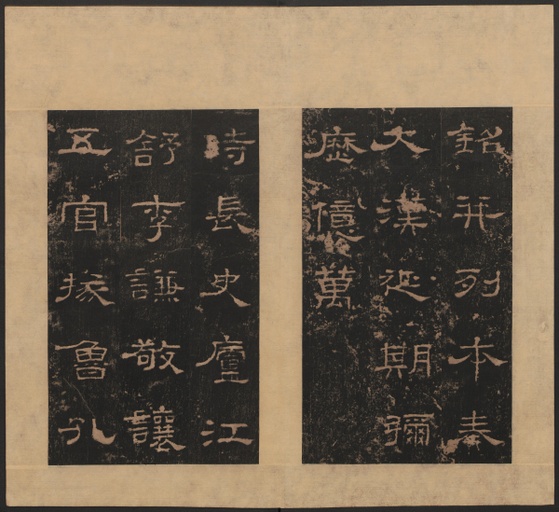 銘并列本奏
大漢延期彌
歷億萬
時長史廬江
舒李謙敬讓
五官掾魯孔